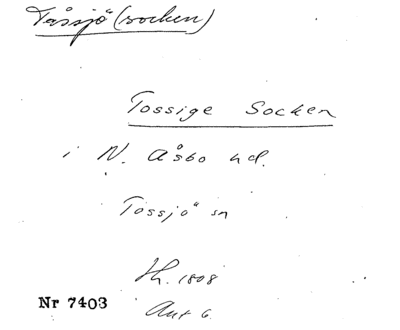 Tåssjö (socken)
Tossige Socken
i N. Åsbo hd.
Tossjö sn
Jh. 1808
Nr 7403
Aut 6.